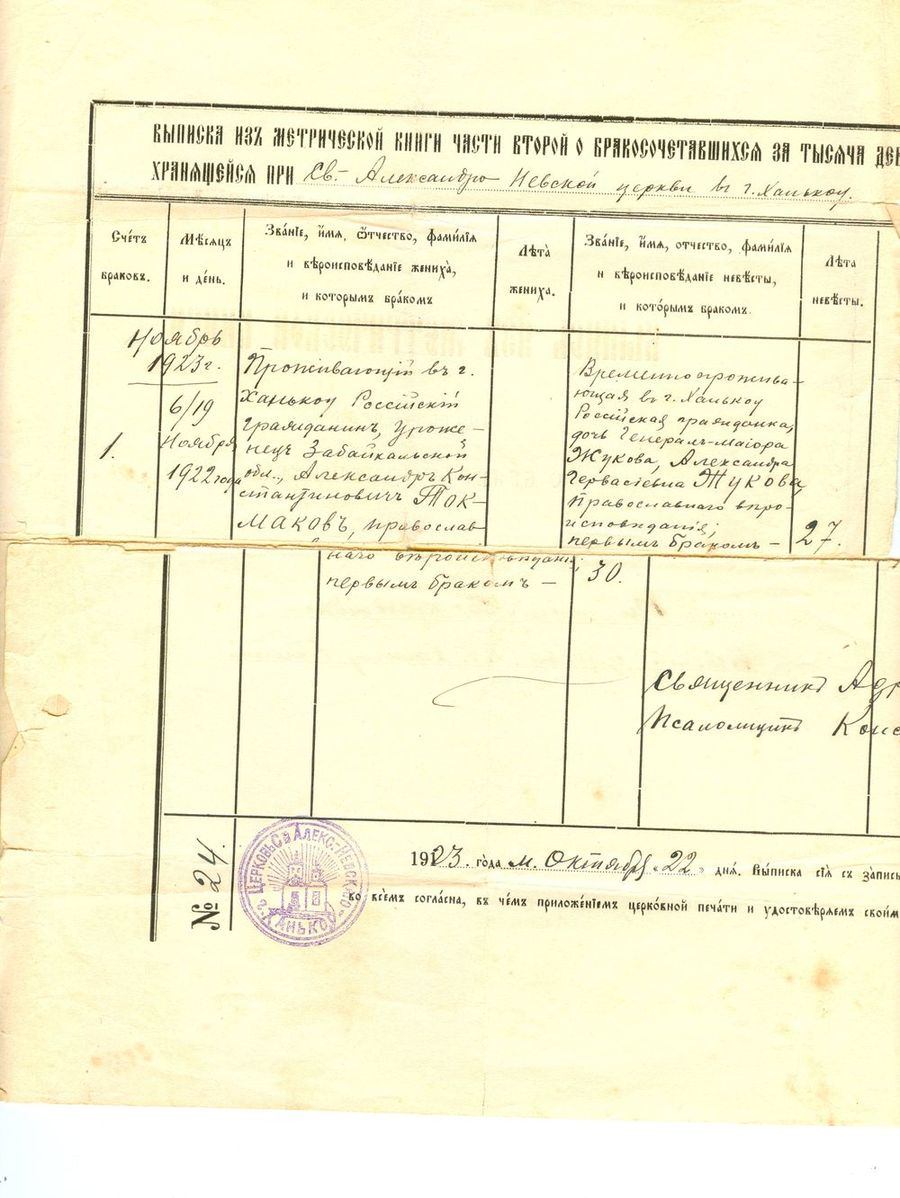 ВЫПИСКА ИЗЪ МЕТРИЧЕСКОЙ КНИГИ ЧАСТИ ВТОРОЙ О БРАКОСОЧЕТАВШИХСЯ ЗА ТЫСЯЧА ДЕВ
ХРАНЯЩЕЙСЯ ПРИ Св. Александро Невской церкви въ г. Ханькоу.
Счетъ
браковъ.
Мѣсяцъ
и день.
Званіе, имя, отчество, фамилія
и вѣроисповѣданіе жениха,
и которымъ бракомъ
Лѣта
жениха.
Званіе, имя, отчество, фамилія
и вѣроисповѣданіе невѣсты,
и которымъ бракомъ.
Лѣта
невѣсты.
Ноябрь
1923 г.
1.
6/19
Ноября
1922 года
Проживающій въ г.
Ханькоу Россійскій
гражданин, уроже-
нецъ Забайкальской
обл., Александръ Кон-
стантиновичъ ТОК-
МАКОВЪ, православ-
наго вѣроисповѣданія;
первымъ бракомъ —
30.
Временно прожива-
ющая въ г. Ханькоу
Россійская гражданка,
дочь Генералъ-Маіора
Жукова, Александра
Гервасіевна ЖУКОВА,
Православнаго вѣро-
исповѣданія;
первымъ бракомъ —
27.
Священникъ Адр
Псаломщикъ Конс
№ 24.
ЦЕРКОВЬ СВ АЛЕКС.-НЕВСКАГО
г. ХАНЬКОУ
1923. года м. Октября "22" дня. Выписка сія съ запись
во всемъ согласна, въ чемъ приложеніемъ церковной печати и удостовѣряемъ своим